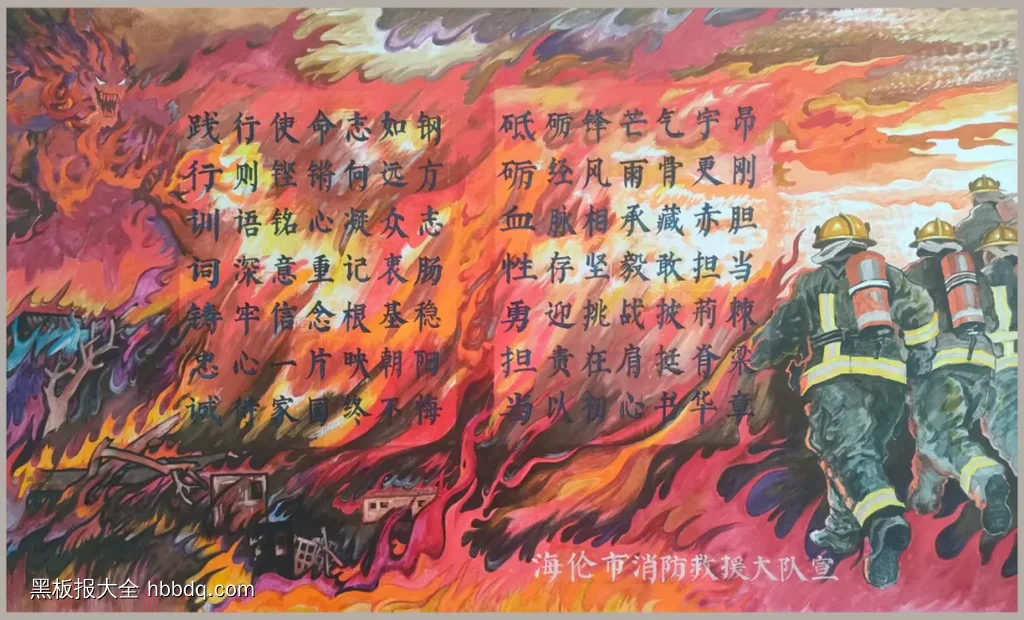 践行使命志如钢
行则铿锵向远方
训语铭心凝众志
词深意重记衷肠
铸牢信念根基稳
忠心一片映朝阳
诚待家国终不悔
砥砺锋芒气宇昂
砺经风雨骨更刚
血脉相承藏赤胆
性存坚毅敢担当
勇迎挑战披荆棘
担责在肩挺脊梁
当以初心书华章
海伦市消防救援大队宣
黑板报大全 hbbdq.com